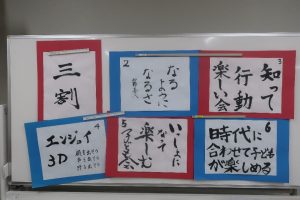 三割
2
なる
ように
なるさ
3
知って
行動
楽しい会
4
エンジョイ
3D
5
いっしょに
なって
楽しむ
6
時代に
合わせて子ども
が楽しめる